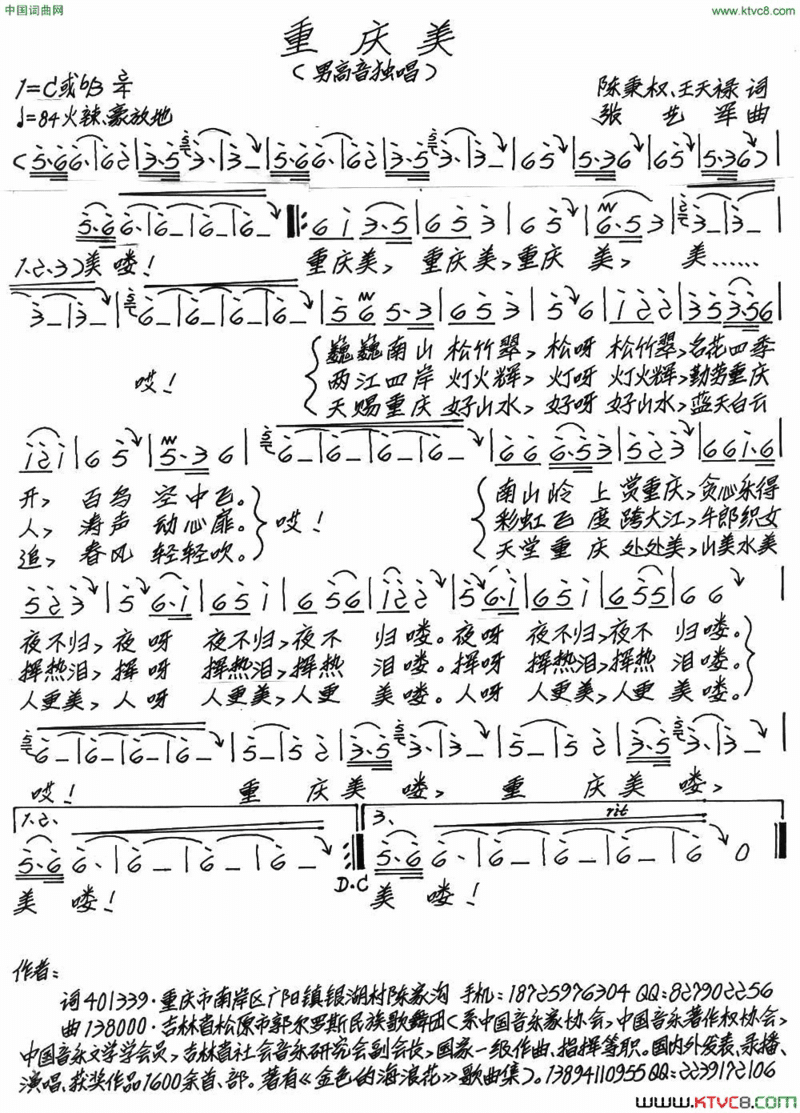 中国词曲网
www.ktvc8.com
重庆美
（男高音独唱）
1=C或bB 2/4
陈秉权、王天禄 词
♩=84 火辣、豪放地
张艺军 曲
1.2.3.）美喽！ 重庆美，重庆美，重庆 美， 美……
哎！
巍巍南山 松竹翠，松呀 松竹翠，名花四季
两江四岸 灯火辉，灯呀 灯火辉，勤劳重庆
天赐重庆 好山水，好呀 好山水，蓝天白云
开， 百鸟 空中飞。 哎！ 南山岭 上 赏重庆，贪心乐得
人， 涛声 动心扉。 彩虹飞 度 跨大江，牛郎织女
追， 春风 轻轻吹。 天堂重庆 处处美，山美水美
夜不归，夜 呀 夜不归，夜不 归喽。夜呀 夜不归，夜不 归喽。
挥热泪，挥 呀 挥热泪，挥热 泪喽。挥呀 挥热泪，挥热 泪喽。
人更美，人 呀 人更美，人更 美喽。人呀 人更美，人更 美喽。
哎！ 重 庆 美 喽， 重 庆 美 喽，
1.2. 3. rit
D.C
美 喽！ 美 喽！
作者：
词401339·重庆市南岸区广阳镇银湖村陈家沟 手机：18725976304 QQ：827902256
曲138000·吉林省松原市郭尔罗斯民族歌舞团（系中国音乐家协会，中国音乐著作权协会，
中国音乐文学学会员，吉林省社会音乐研究会副会长，国家一级作曲、指挥等职。国内外发表、录播、
演唱、获奖作品1600余首、部。著有《金色的海浪花》歌曲集）。13894110955 QQ：2239172106
www.KTVC8.com